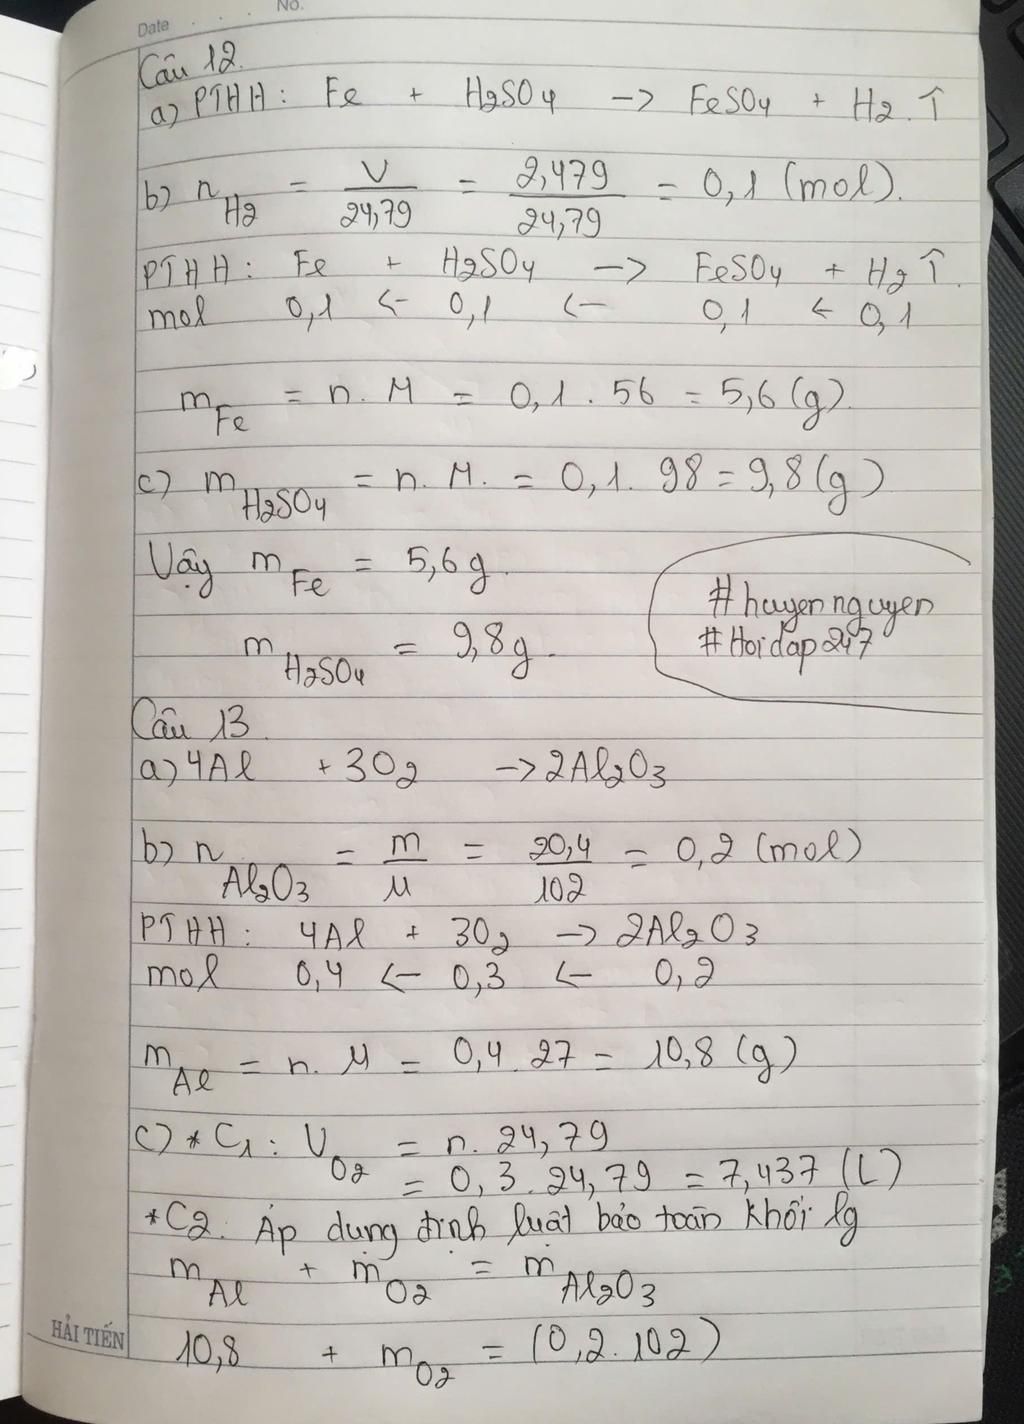 Date No.
Câu 12.
a) PTHH: Fe + H2SO4 -> FeSO4 + H2.↑
b) nH2 = V/24,79 = 2,479/24,79 = 0,1 (mol).
PTHH: Fe + H2SO4 -> FeSO4 + H2↑.
mol 0,1 <- 0,1 <- 0,1 <- 0,1
mFe = n.M = 0,1.56 = 5,6(g).
c) mH2SO4 = n.M. = 0,1.98 = 9,8(g)
Vậy mFe = 5,6g.
mH2SO4 = 9,8g.
#huyennguyen
#Hoidap247
Câu 13.
a) 4Al + 3O2 -> 2Al2O3
b) nAl2O3 = m/M = 20,4/102 = 0,2 (mol)
PTHH: 4Al + 3O2 -> 2Al2O3
mol 0,4 <- 0,3 <- 0,2
mAl = n.M = 0,4.27 = 10,8 (g)
c) *C1: VO2 = n.24,79
= 0,3.24,79 = 7,437 (L)
*C2. Áp dụng định luật bảo toàn khối lg
mAl + mO2 = mAl2O3
10,8 + mO2 = (0,2.102)
HẢI TIẾN